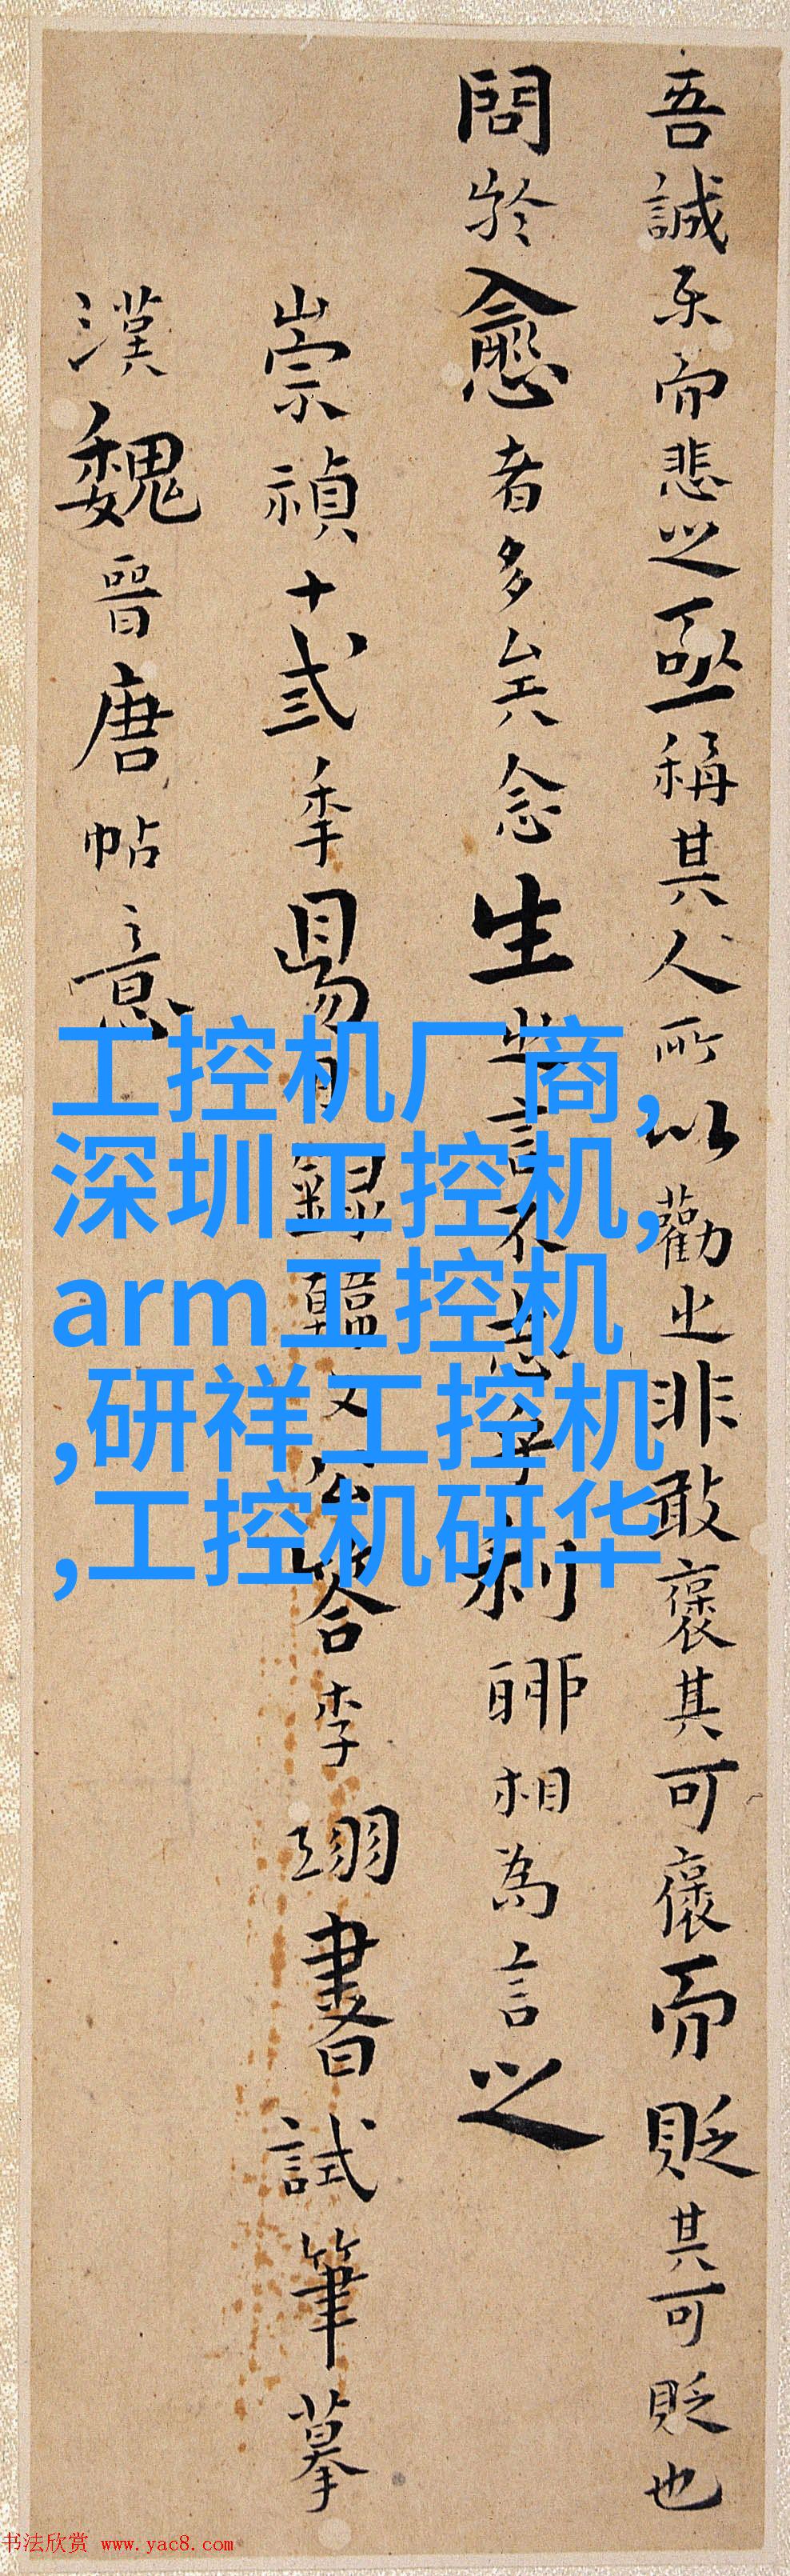 吾誠樂而悲之亟稱其人所以勸之非敢褒其可褒而貶其可貶也
問於愈者多矣念生之言不志乎利聊相為言之
崇禎十弍季易月錄韓文公答李翊書試筆摹
漢魏晉唐帖意
工控机厂商,
深圳工控机,
arm工控机
,研祥工控机
,工控机研华
书法欣赏 www.yac8.com